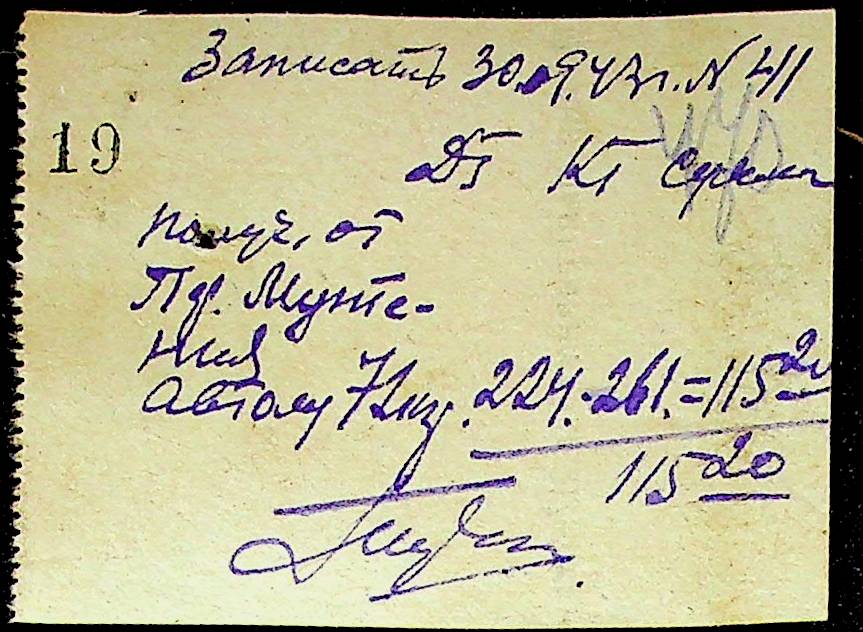 Записать 30.09.43г. N 411
19
Дт Кт Сумма
получ. от
Пр. Мунте-
ния
автолу 72кг. 224. 261. = 115 20
115 20